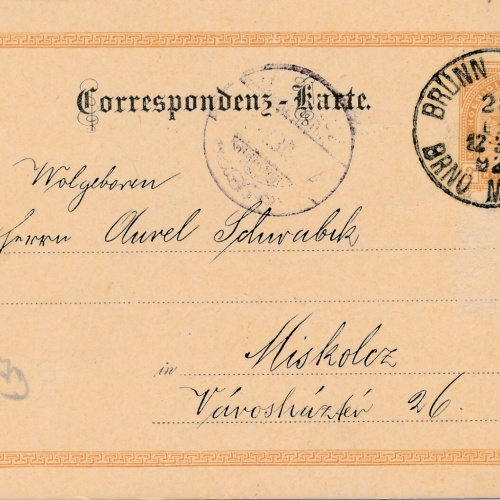 Correspondenz-Karte.
BRÜNN
BRNO
Wolgeboren
Herrn Aurel Schwabek
in Miskolcz
Városháztér 26.